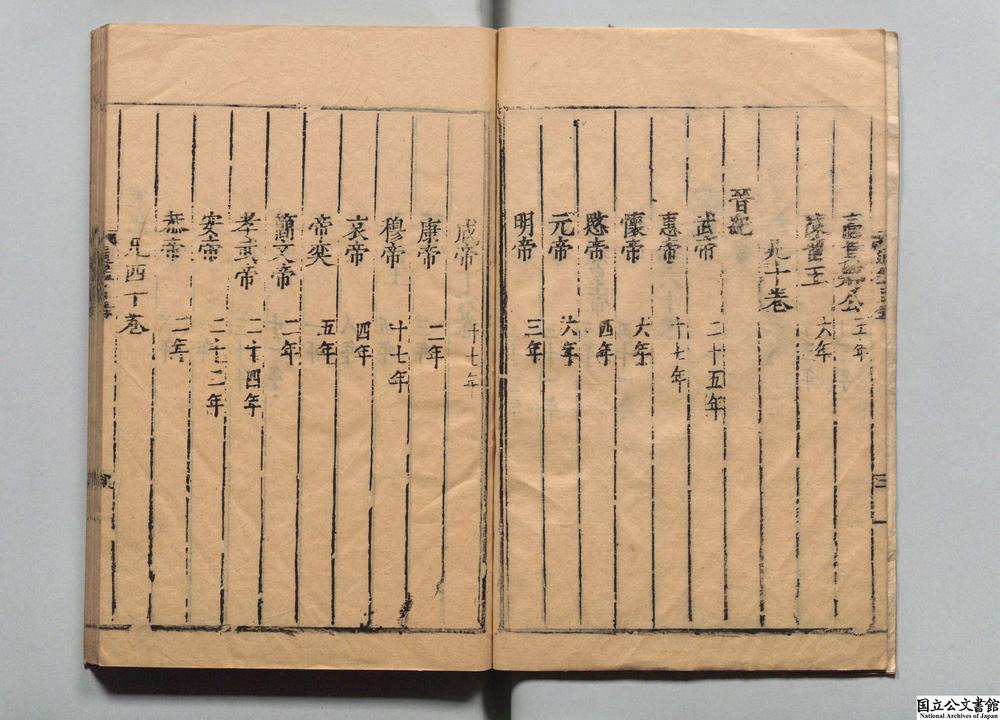 高貴鄉公 五年
陳留王 六年
凡十卷
晉紀
武帝 二十五年
惠帝 十七年
懷帝 六年
愍帝 四年
元帝 六年
明帝 三年
成帝 十七年
康帝 二年
穆帝 十七年
哀帝 四年
帝奕 五年
簡文帝 二年
孝武帝 二十四年
安帝 二十二年
恭帝 二年
凡四十卷
国立公文書館
National Archives of Japan